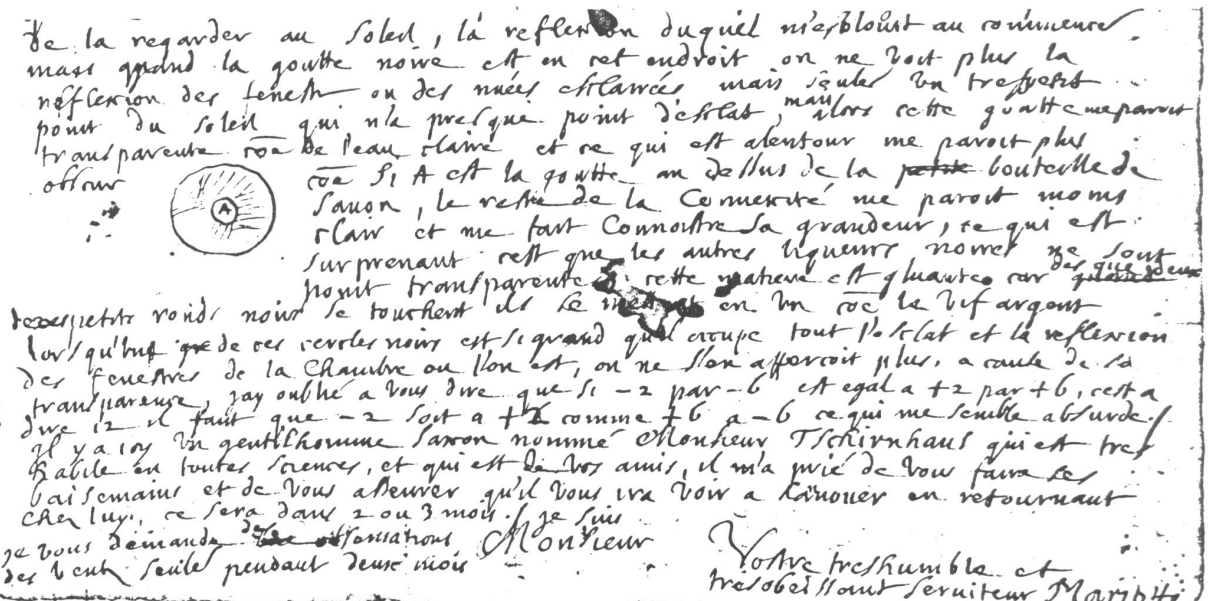 de la regarder au soleil, la reflexion duquel m'esblouit au commencem
mais quand la goutte noire est en cet endroit on ne voit plus la
reflexion des fenest ou des nuées esclairées mais seulem un trespetit
point du soleil qui n'a presque point desclat, mais alors cette goutte me paroit
transparente coe de l'eau claire et ce qui est alentour me paroit plus
obscur coe Si A est la goutte au dessus de la petite bouteille de
A
savon, le reste de la Convexité me paroit moins
clair et me fait Connoistre sa grandeur, ce qui est
surprenant cest que les autres liqueurs noires ne sont
point transparentes cette matiere est gluante car des que deux
petits ronds noirs se touchent ils se mettent en un coe le vif argent
lorsqu'un de ces cercles noirs est si grand quil occupe tout l'esclat et la reflexion
des fenestres de la Chambre ou l'on est, on ne s'en apperçoit plus, a cause de sa
transparence, jay oublié a vous dire que si -2 par -6 est egal a +2 par +6, cest a
dire 12 il faut que -2 soit a +2 comme +6 a -6 ce qui me semble absurde./
il y a icy un gentilhomme saxon nommé Monsieur Tschirnhaus qui est tres
habile en toutes sciences, et qui est de vos amis, il m'a prié de vous faire ses
baisemains et de vous asseurer qu'il vous ira voir a hanover en retournant
chez luy, ce sera dans 2 ou 3 mois. Je suis
je vous demande des observations Monsieur
des vents seulem pendant deux mois
Vostre treshumble et
tresobeissant serviteur Mariotte